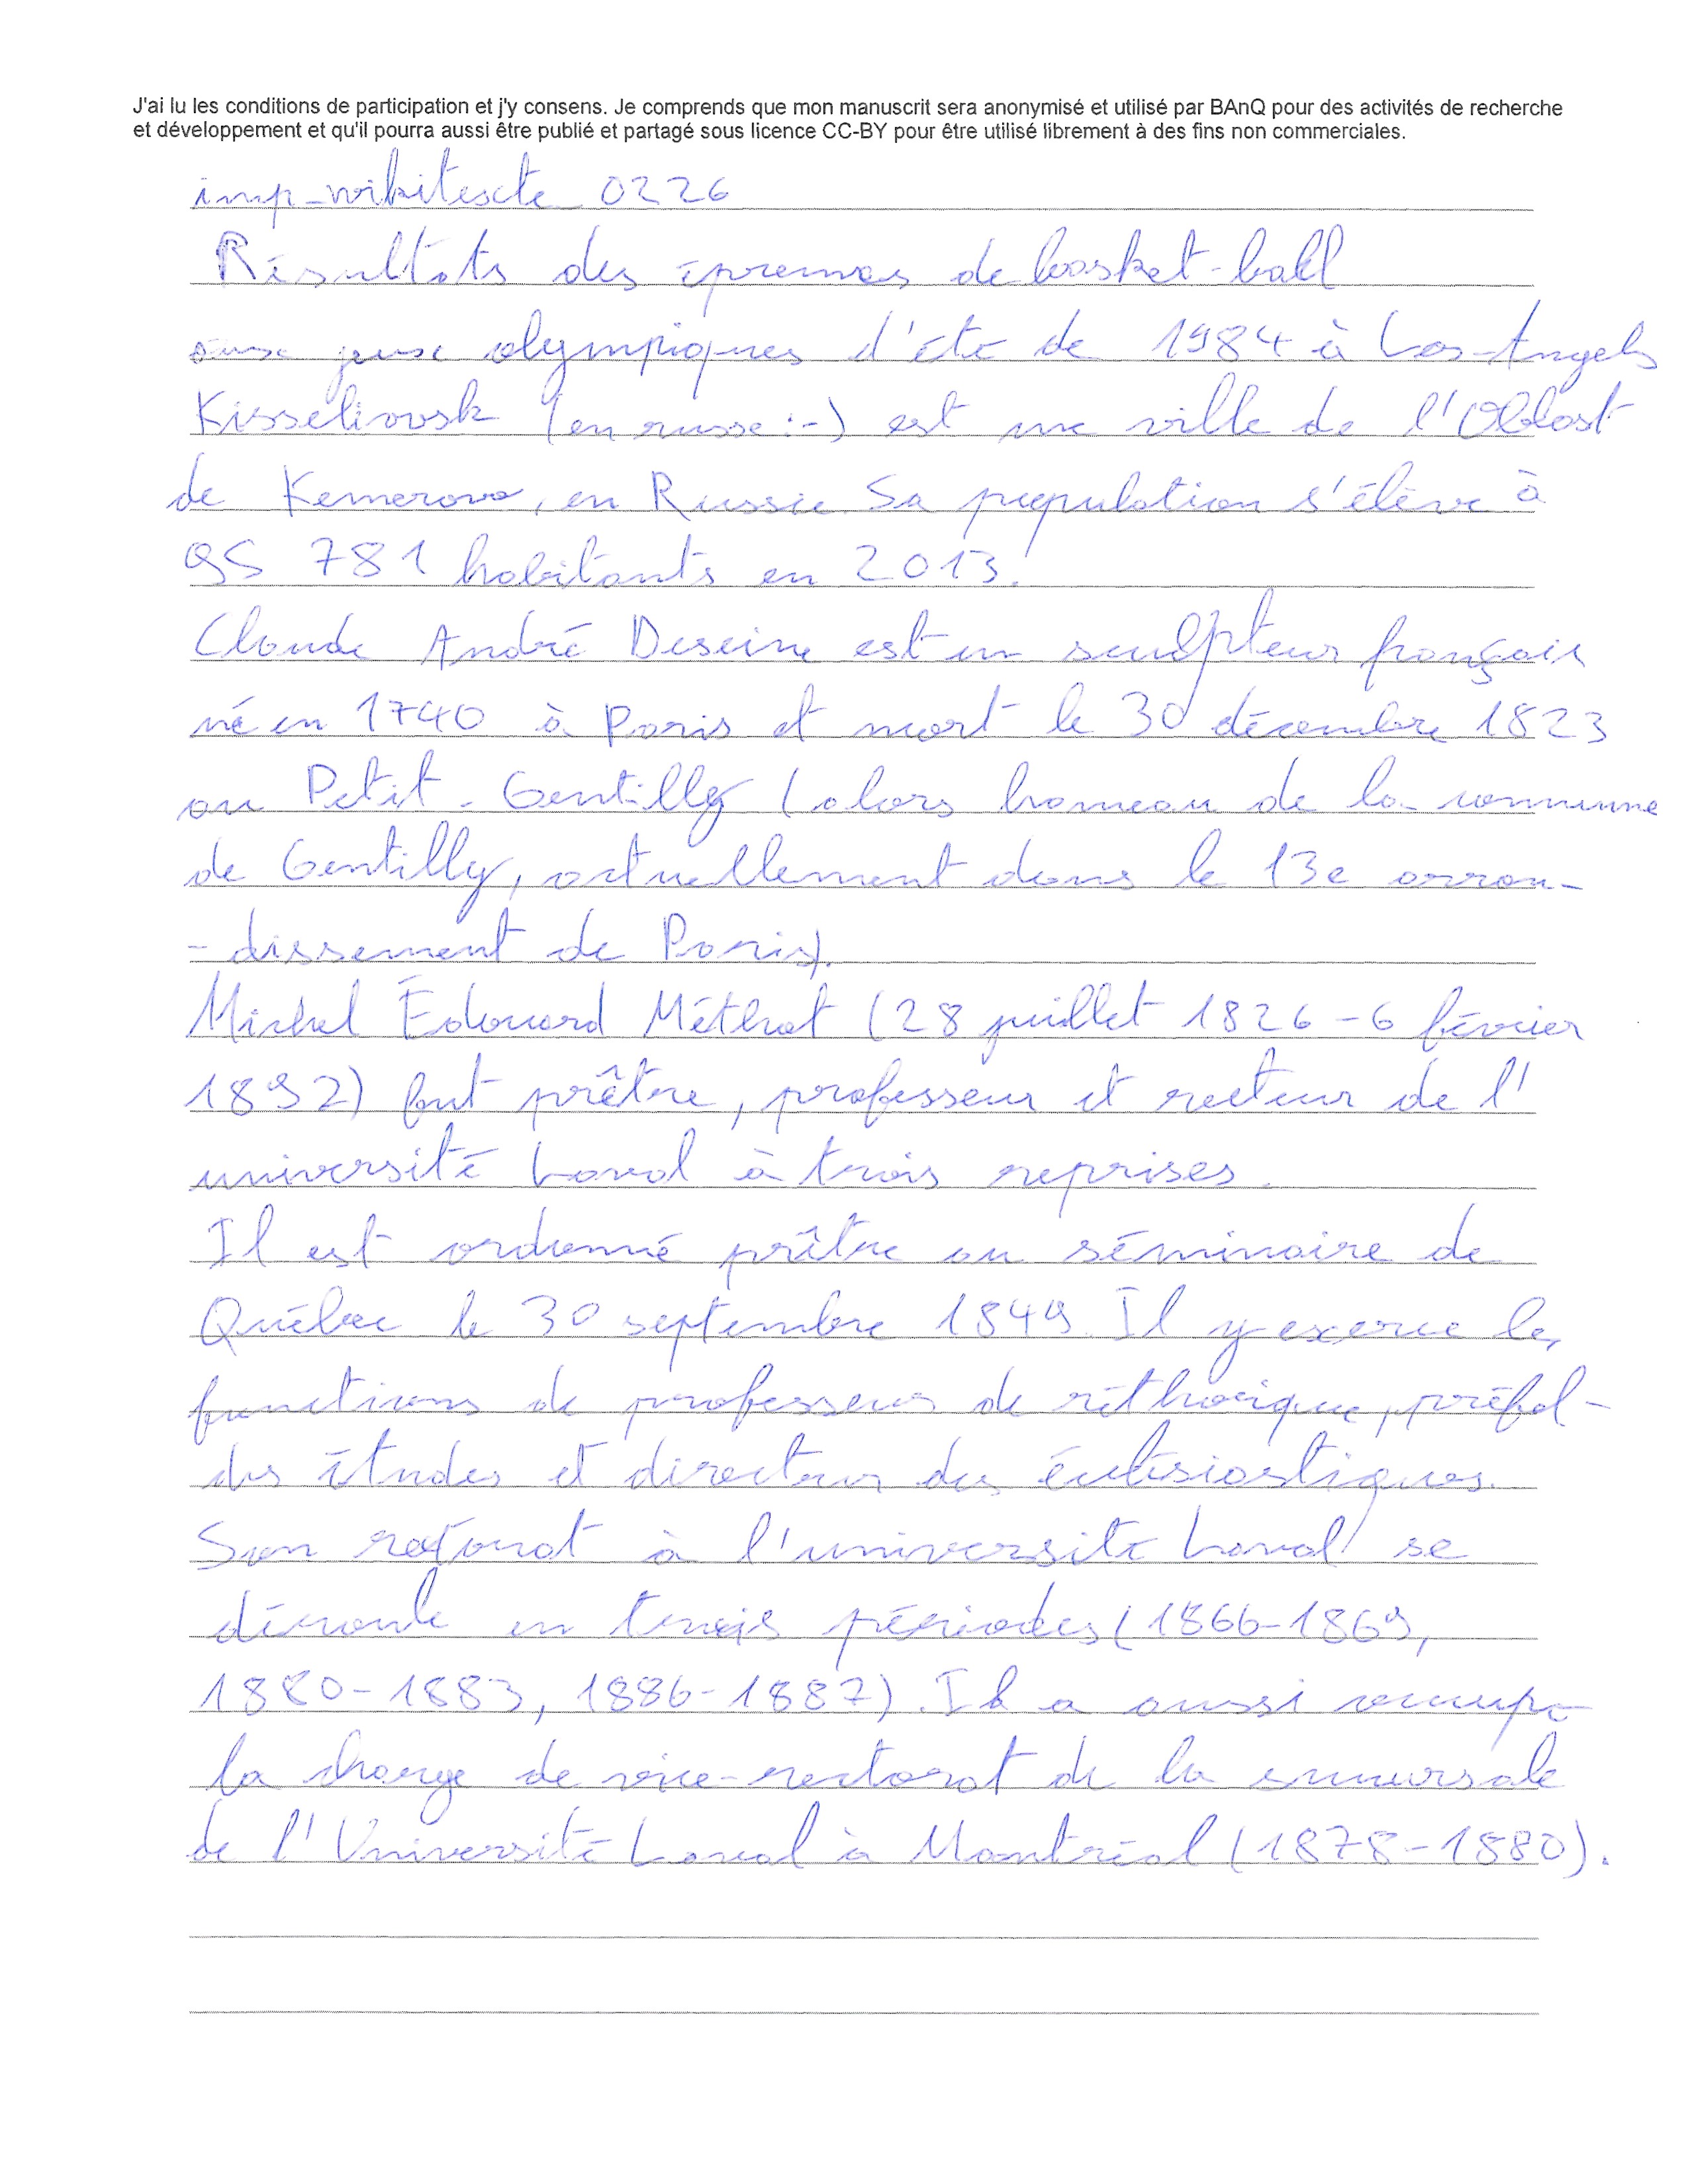 J'ai lu les conditions de participation et j'y consens. Je comprends que mon manuscrit sera anonymisé et utilisé par BAnQ pour des activités de recherche
et développement et qu'il pourra aussi être publié et partagé sous licence CC-BY pour être utilisé librement à des fins non commerciales.
imp_wikitexte_0226
Résultats des épreuves de basket-ball
aux jeux olympiques d'été de 1984 à Los-Angels
Kisseliovsk (en russe :-) est une ville de l'Oblast
de Kemerovo, en Russie. Sa population s'élève à
95 781 habitants en 2013.
Claude André Deseine est un sculpteur français
né en 1740 à Paris et mort le 30 décembre 1823
au Petit-Gentilly (alors hameau de la commune
de Gentilly, actuellement dans le 13e arron-
-dissement de Paris).
Michel Édouard Méthot (28 juillet 1826-6 février
1892) fut prêtre, professeur et recteur de l'
université Laval à trois reprises.
Il est ordonné prêtre au séminaire de
Québec le 30 septembre 1849. Il y exerce les
fonctions de professeur de réthorique, préfet
des études et directeur des éclésiastiques.
Son rectorat à l'université Laval se
déroule en trois périodes (1866-1869,
1880-1883, 1886-1887). Il a aussi occupé
la charge de vice-rectorat de la succursale
de l'Université Laval à Montréal (1878-1880).